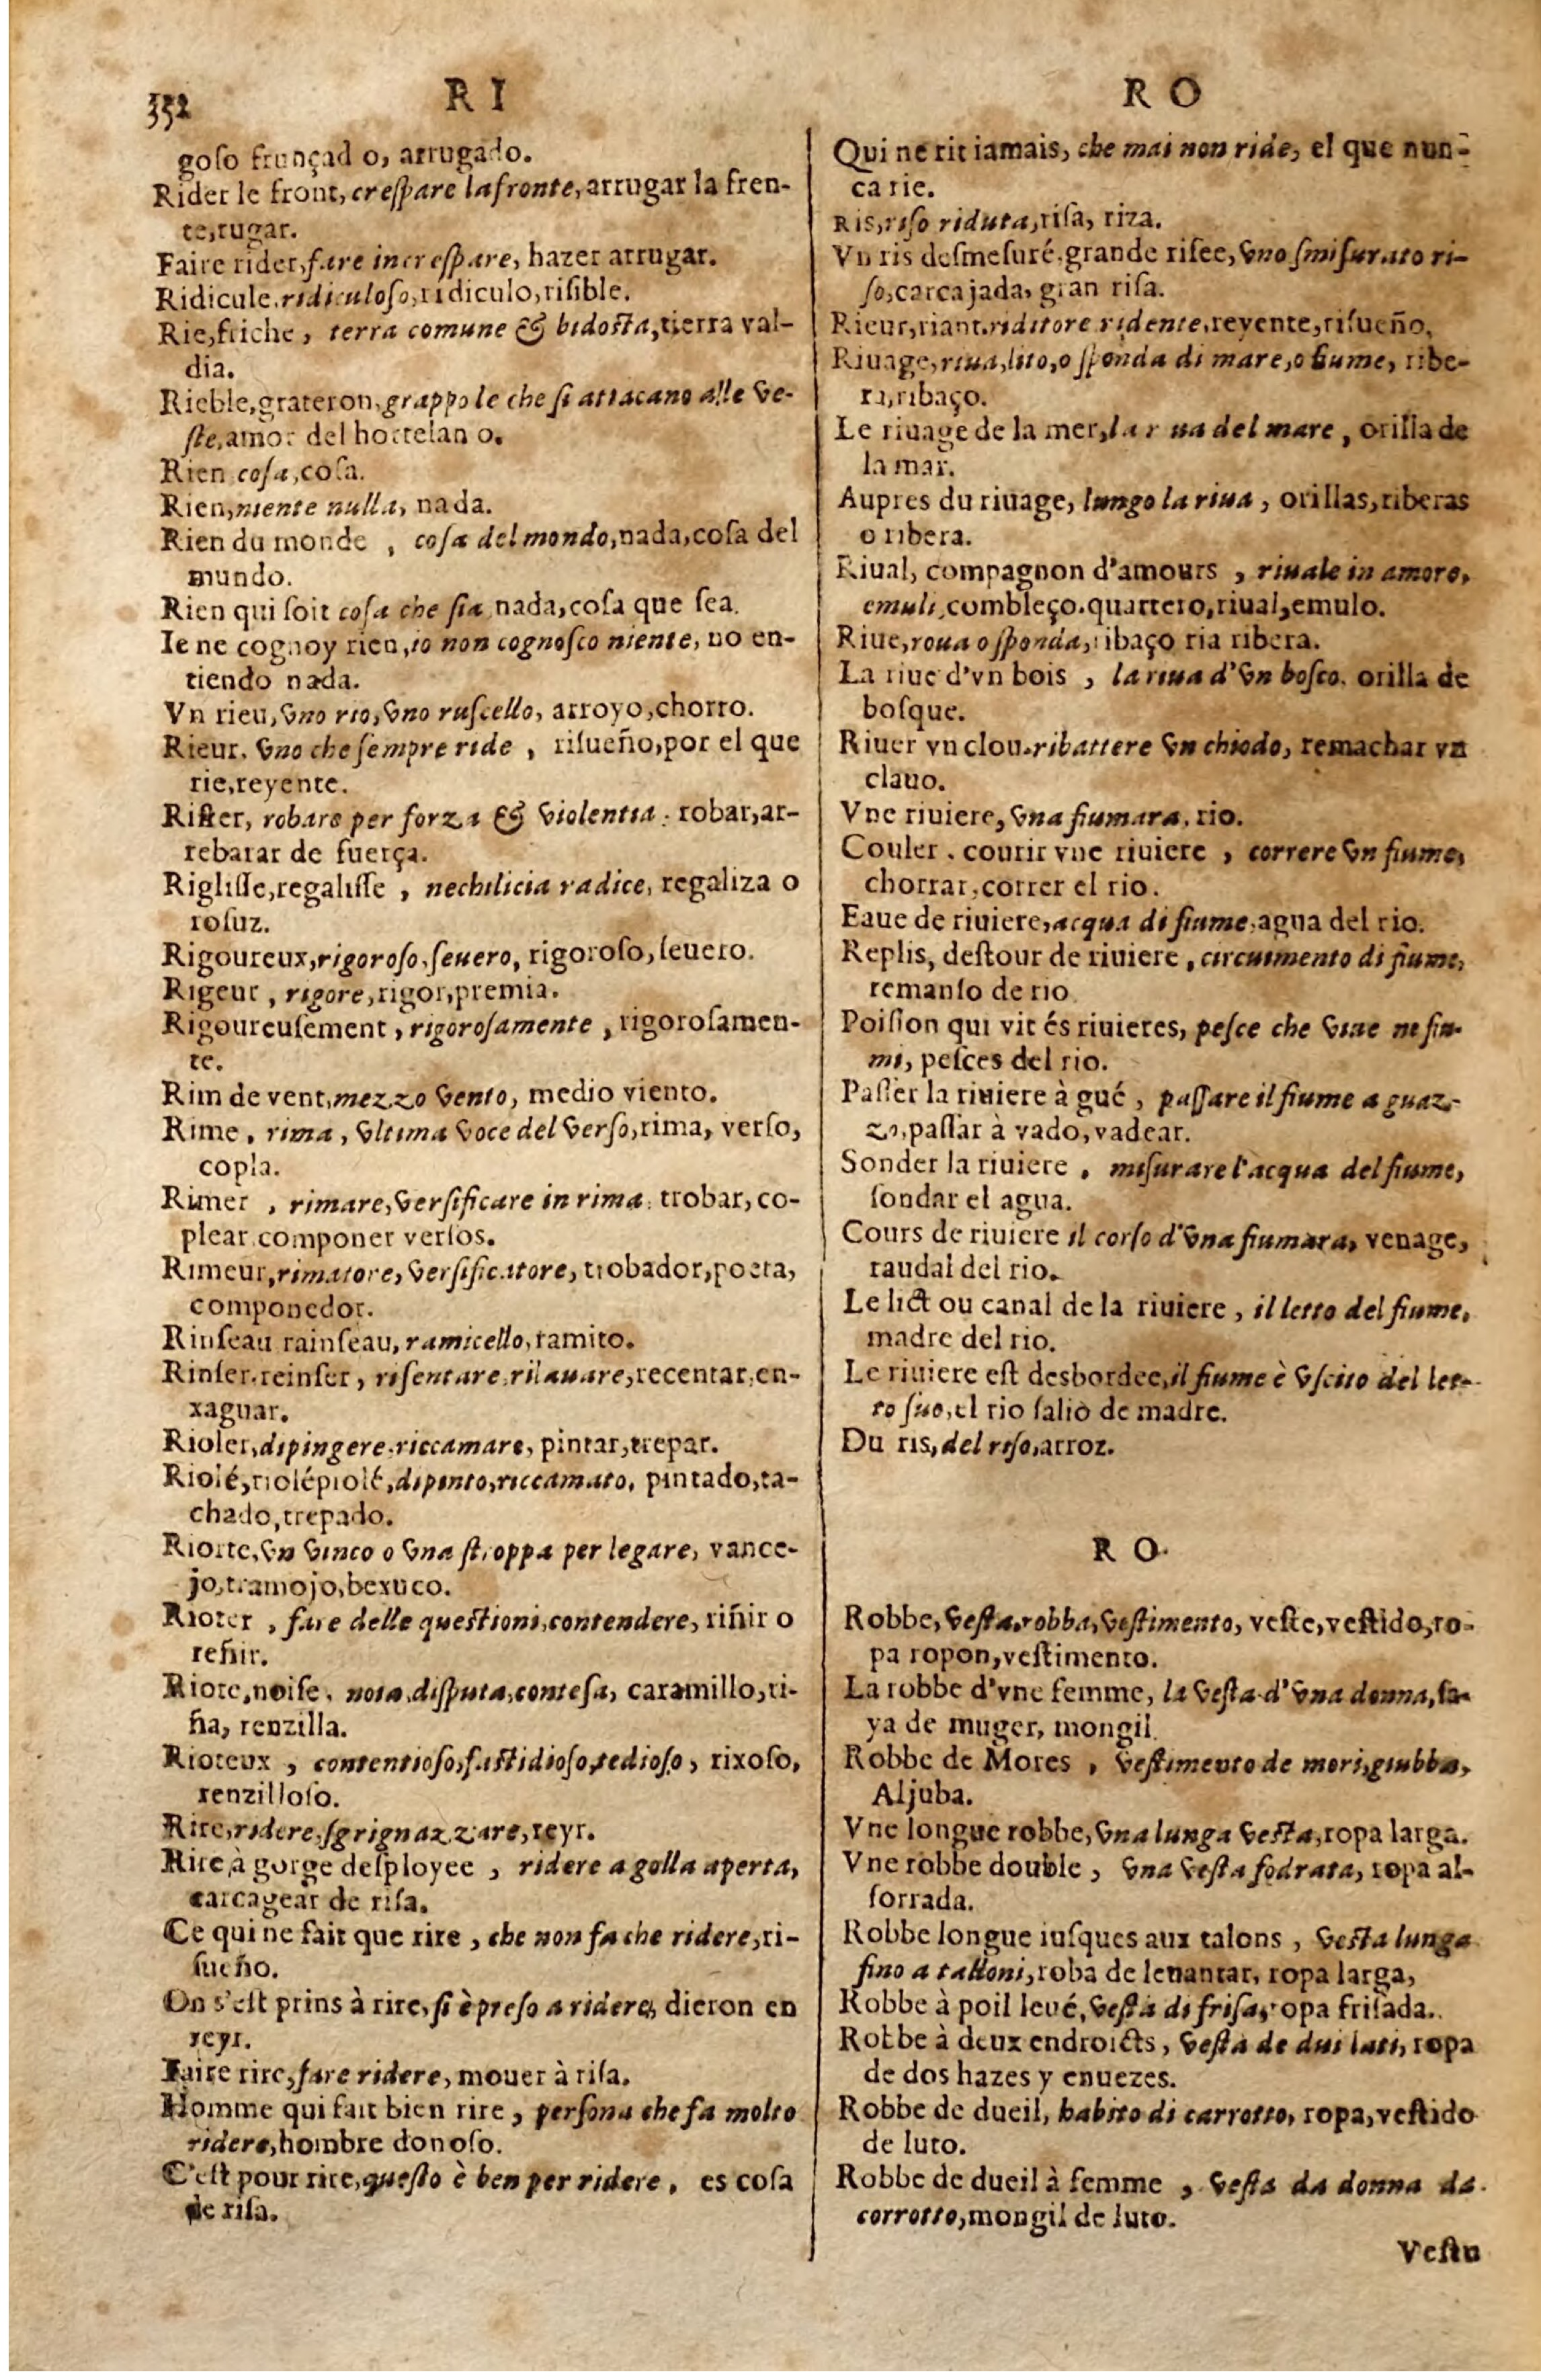 352
R I
R O
goſo frunçad o, arrugado.
Rider le front, creſpare lafronte, arrugar la fren-
te,rugar.
Faire rider,fare increſpare, hazer arrugar.
Ridicule.ridiculoſo,ridiculo,riſible.
Rie,friche, terra comune & bidoſta,tierra val-
dia.
Rieble,grateron,grappole che ſi attacano alle ve-
ſte,amor del hortelan o.
Rien coſa,coſa.
Rien,niente nulla, nada.
Rien du monde , coſa del mondo,nada,coſa del
mundo.
Rien qui ſoit coſa che ſia nada,coſa que ſea.
Ie ne cognoy rien,io non cognoſco niente, no en-
tiendo nada.
Vn rieu,vno rio,vno ruſcello, arroyo,chorro.
Rieur. vno che ſempre ride , riſueño,por el que
rie,reyente.
Rifler, robare per forza & violentia. robar,ar-
rebatar de fuerça.
Riglisſe,regalisſe , nechilicia radice, regaliza o
roſuz.
Rigoureux,rigoroſo,ſeuero, rigoroſo,ſeuero.
Rigeur , rigore,rigor,premia.
Rigoureuſement , rigoroſamente , rigoroſamen-
te.
Rim de vent,mezzo vento, medio viento.
Rime , rima , vltima voce del verſo,rima, verſo,
copla.
Rimer , rimare,verſificare in rima. trobar,co-
plear.componer verſos.
Rimeur,rimatore, verſificatore, trobador,poeta,
componedor.
Rinſeau rainſeau, ramicello,ramito.
Rinſer.reinſer, riſentare,rilauare,recentar,en-
xaguar.
Rioler,dipingere.riccamare, pintar,trepar.
Riolé,riolépiolé,dipinto,riccamato, pintado,ta-
chado,trepado.
Riorte,vn vinco o vna ſtroppa per legare, vance-
jo,tramojo,bexuco.
Rioter , fare delle queſtioni,contendere, riñir o
reñir.
Riote,noiſe, noia,diſputa,conteſa, caramillo,ri-
ña, renzilla.
Rioteux , contentioſo,faſtidioſo,tedioſo, rixoſo,
renzilloſo.
Rire,ridere,ſgrignazzare,reyr.
Rire à gorge deſployee , ridere a golla aperta,
carcagear de riſa.
Ce qui ne fait que rire , che non fa che ridere,ri-
ſueño.
On s'eſt prins à rire,ſi è preſo a ridere, dieron en
reyr.
Faire rire,fare ridere, mouer à riſa.
Homme qui fait bien rire , perſona che fa molto
ridere,hombre donoſo.
C'eſt pour rire,queſto è ben per ridere , es coſa
de riſa.
Qui ne rit iamais, che mai non ride, el que nun-
ca rie.
Ris,riſo riduta,riſa, riza.
Vn ris deſmeſuré.grande riſee, vno ſmiſurato ri-
ſo,carcajada, gran riſa.
Rieur,riant.riditore ridente,reyente,riſueño.
Riuage,riua,lito,o ſponda di mare,o fiume, ribe-
ra,ribaço.
Le riuage de la mer,la r ua del mare , orilla de
la mar.
Aupres du riuage, lungo la riua , orillas,riberas
o ribera.
Riual, compagnon d'amours , riuale in amore,
emuli,combleço.quartero,riual,emulo.
Riue,roua o ſponda,ribaço ria ribera.
La riue d'vn bois , la riua d'vn boſco. orilla de
boſque.
Riuer vn clou.ribattere vn chiodo, remachar vn
clauo.
Vne riuiere, vna fiumara. rio.
Couler . courir vne riuiere , correre vn fiume,
chorrar,correr el rio.
Eaue de riuiere,acqua di fiume,agua del rio.
Replis, deſtour de riuiere , circuimento di fiume,
remanſo de rio
Poiſſon qui vit és riuieres, peſce che viue ne fiu-
mi, peſces del rio.
Paſſer la riuiere à gué , paſſare il fiume a guaz-
zo,paſſar à vado,vadear.
Sonder la riuiere , miſurare l'acqua del fiume,
ſondar el agua.
Cours de riuiere il corſo d'vna fiumara, venage,
raudal del rio.
Le lict ou canal de la riuiere , il letto del fiume,
madre del rio.
Le riuiere eſt desbordee,il fiume è vſcito del let-
to ſuo,el rio ſaliò de madre.
Du ris,del riſo,arroz.
R O.
Robbe, veſta,robba,veſtimento, veſte,veſtido,ro-
pa ropon,veſtimento.
La robbe d'vne femme, la veſta d'vna donna,ſa-
ya de muger, mongil
Robbe de Mores , veſtimento de mori,giubba,
Aljuba.
Vne longue robbe,vna lunga veſta,ropa larga.
Vne robbe double , vna veſta fodrata, ropa al-
forrada.
Robbe longue iuſques aux talons , veſta lunga
fino a talloni,roba de leuantar, ropa larga,
Robbe à poil leué,veſta di friſa,ropa friſada.
Robbe à deux endroicts, veſta de dui lati, ropa
de dos hazes y enuezes.
Robbe de dueil, habito di carrotto, ropa,veſtido
de luto.
Robbe de dueil à femme , veſta da donna da
corrotto,mongil de luto.
Veſtu